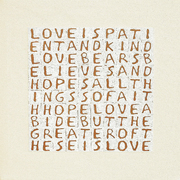 LOVEISPATI
ENTANDKIND
LOVEBEARSB
ELIEVESAND
HOPESALLTH
INGSSOFAIT
HHOPELOVEA
BIDEBUTTHE
GREATEROFT
HESEISLOVE